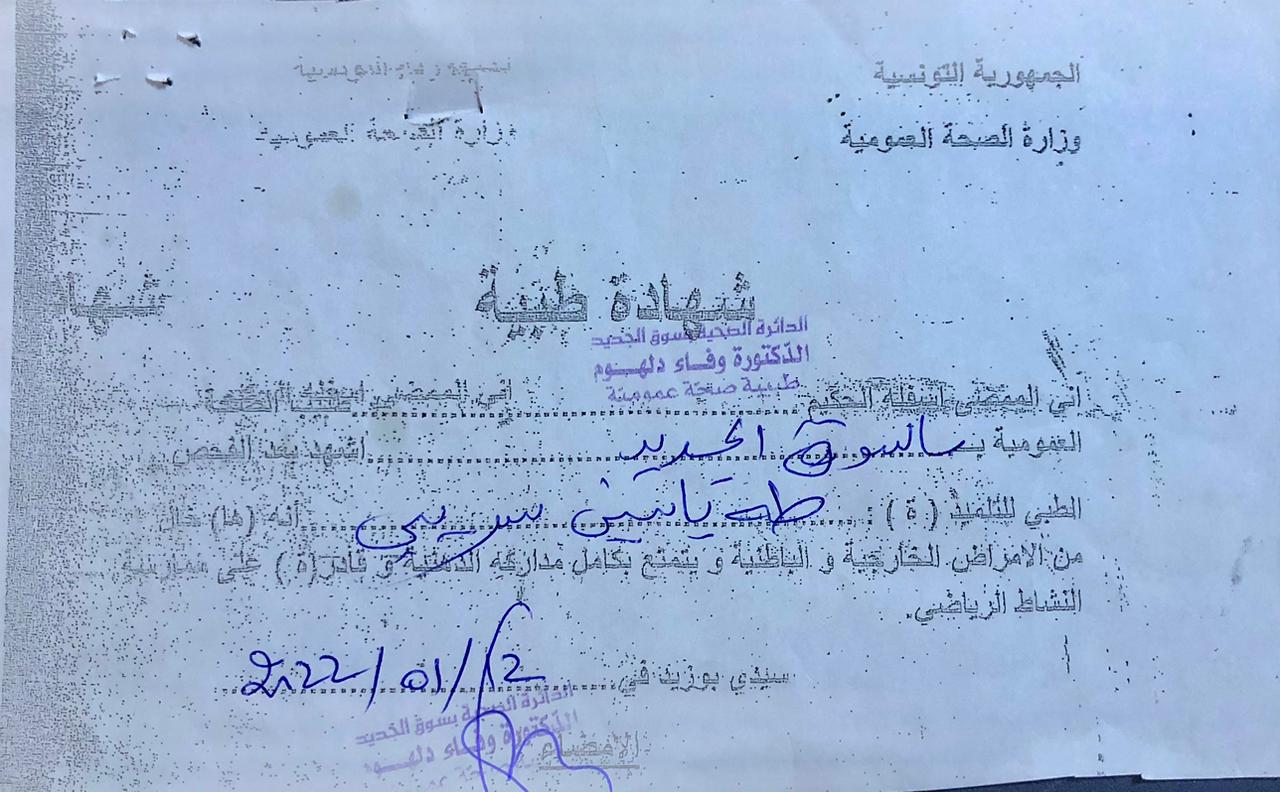 الجمهورية التونسية
وزارة الصحة العمومية
وزارة الصحة العمومية
شهادة طبية
شها
الدائرة الصحية بسوق الجديد
الدكتورة وفاء دلهوم
طبيبة صحة عمومية
اني الممضي اسفله الحكيم
اني الممضي
العمومية بـ السوق الجديد اشهد بعد الفحص
الطبي للتلميذ ( ة ) : طه ياسين أنه (ها) خال
من الامراض الخارجية و الباطنية و يتمتع بكامل مداركه الذهنية و قادر(ة ) على ممارسة
النشاط الرياضي.
سيدي بوزيد في 2022/01/12
الدائرة الصحية بسوق الجديد
الدكتورة وفاء دلهوم
الامضاء